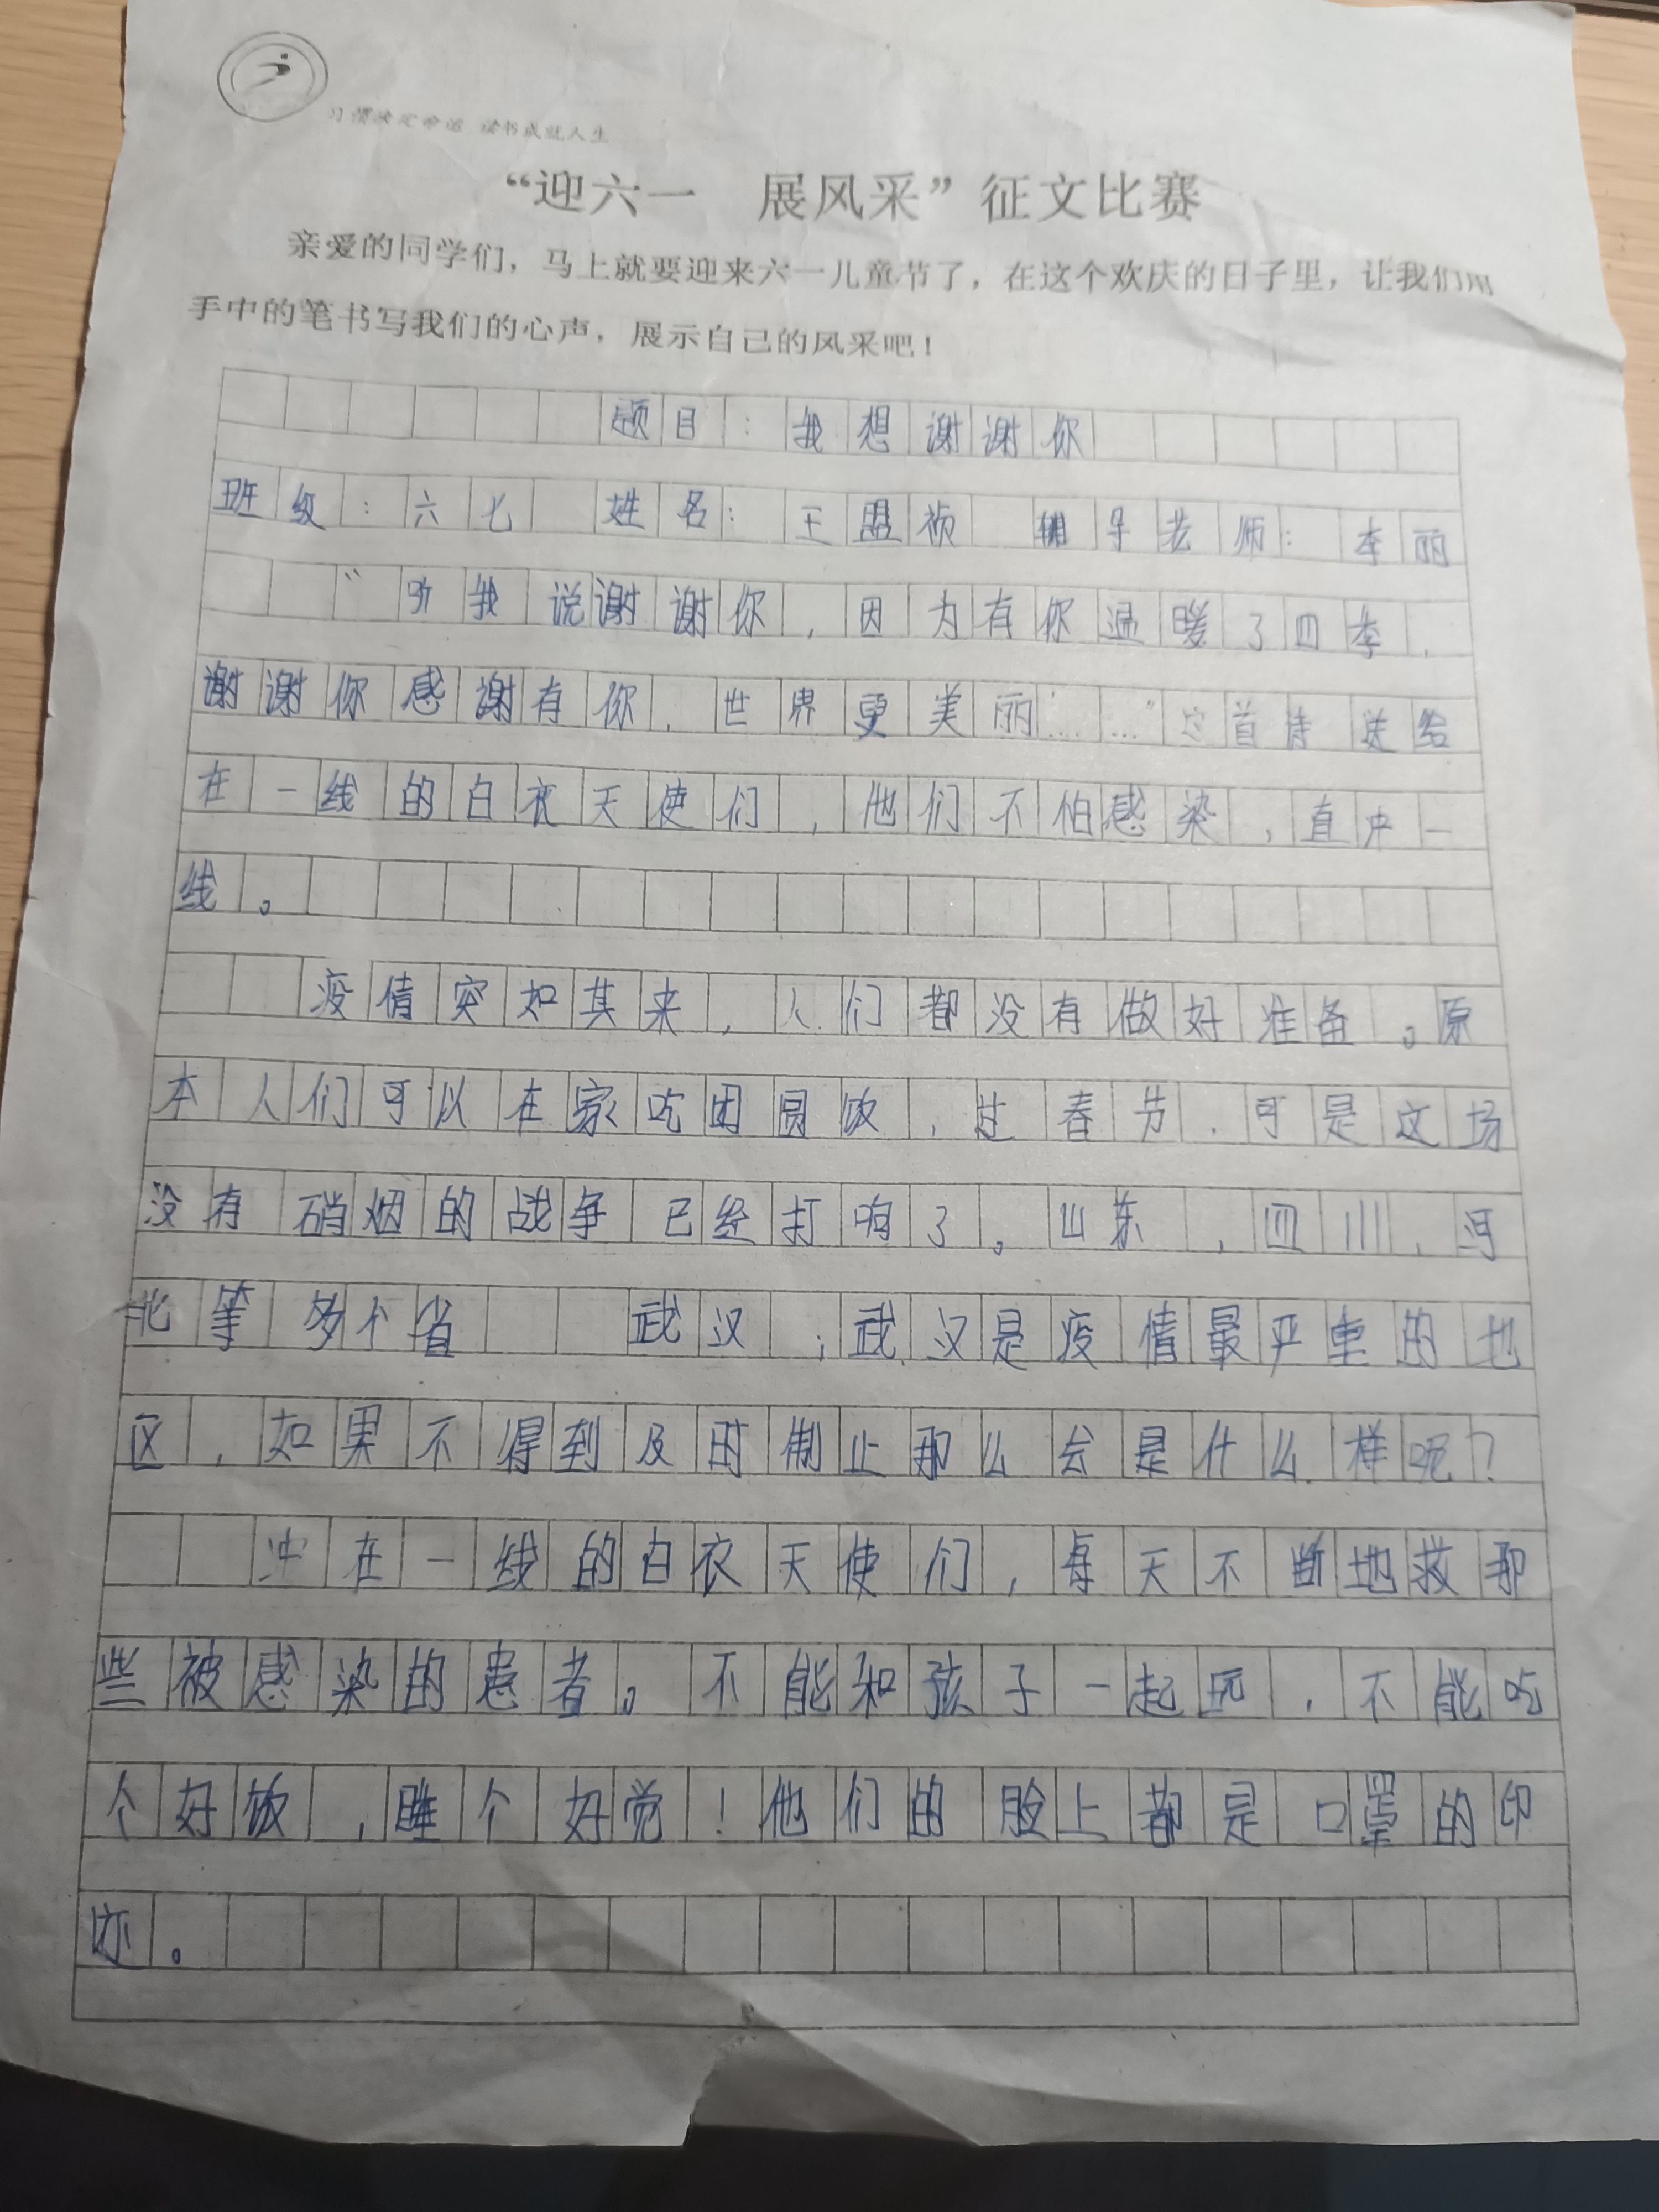 习惯决定命运 读书成就人生
“迎六一 展风采”征文比赛
亲爱的同学们，马上就要迎来六一儿童节了，在这个欢庆的日子里，让我们用
手中的笔书写我们的心声，展示自己的风采吧！
题目：我想谢谢你
班级：六七 姓名：王盟祯 辅导老师：李丽
“听我说谢谢你，因为有你温暖了四季，
谢谢你感谢有你，世界更美丽……”这首诗送给
在一线的白衣天使们，他们不怕感染，直冲一
线。
疫情突如其来，人们都没有做好准备。原
本人们可以在家吃团圆饭，过春节，可是这场
没有硝烟的战争已经打响了。山东，四川，河
北等多个省 武汉，武汉是疫情最严重的地
区，如果不得到及时制止那么会是什么样呢？
冲在一线的白衣天使们，每天不断地救那
些被感染的患者。不能和孩子一起玩，不能吃
个好饭，睡个好觉！他们的脸上都是口罩的印
迹。